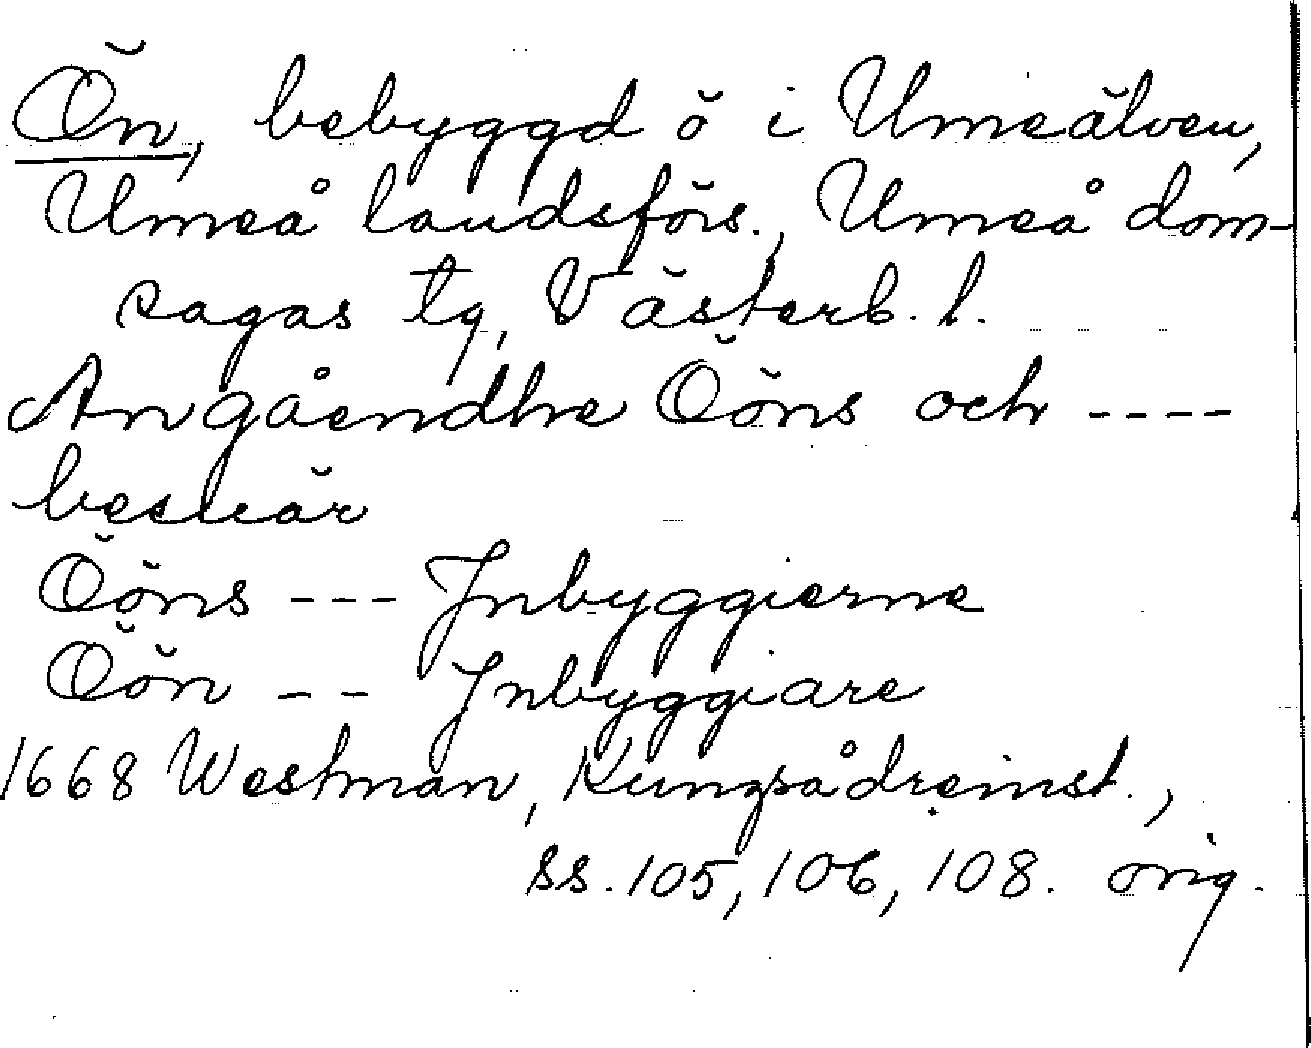 Ön, bebyggd ö i Umeälven,
Umeå landsförs., Umeå dom-
sagas tg, Västerb. l.
Angåendhe Ööns och ----
besuär
Ööns --- Jnbyggierne
Öön -- Jnbyggiare
1668 Westman, Kungsådreinst.,
ss. 105, 106, 108. orig.